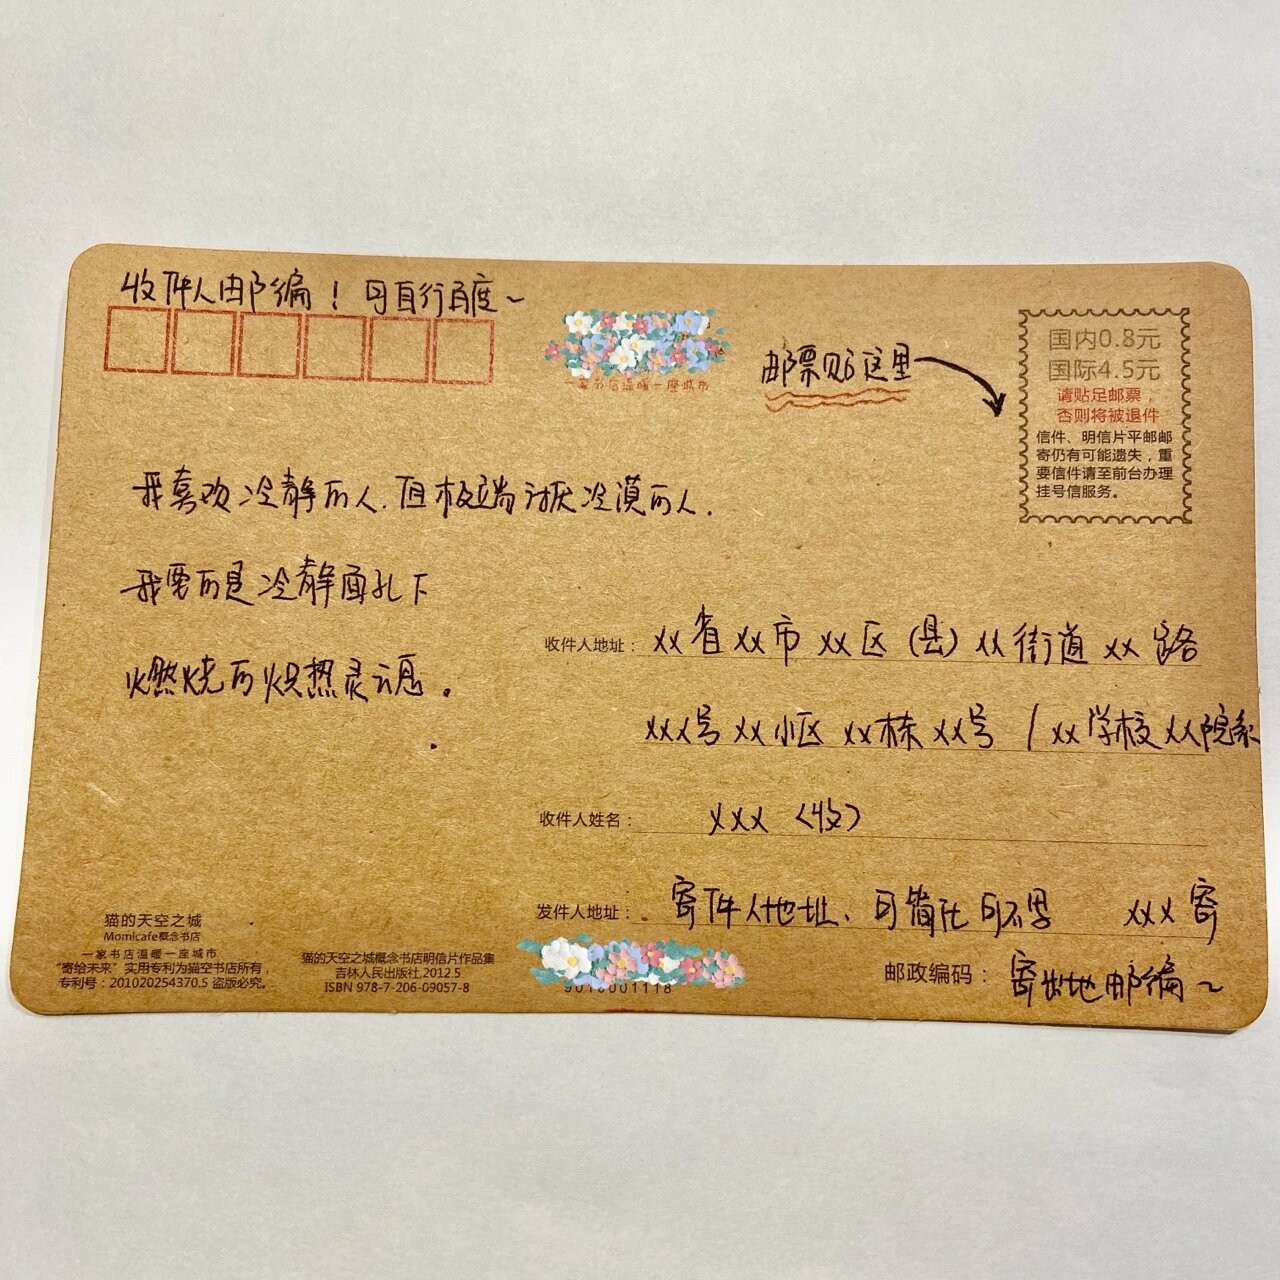 收件人邮编！可自行百度~
一家书信温暖一座城市
邮票贴这里
国内0.8元
国际4.5元
请贴足邮票，
否则将被退件
信件、明信片平邮邮
寄仍有可能遗失，重
要信件请至前台办理
挂号信服务。
我喜欢冷静的人.但极端讨厌冷漠的人.
我要的是冷静面孔下
燃烧的炽热灵魂.
收件人地址： xx省xx市xx区(县)xx街道xx路
xxx号xx小区xx栋xx号/xx学校xx院系
收件人姓名： xxx〈收〉
发件人地址： 寄件人地址、可简化可不写 xxx寄
邮政编码： 寄出地邮编~
猫的天空之城
Momicafe概念书店
一家书店温暖一座城市
“寄给未来”实用专利为猫空书店所有，
专利号：201020254370.5 盗版必究。
猫的天空之城概念书店明信片作品集
吉林人民出版社,2012.5
ISBN 978-7-206-09057-8